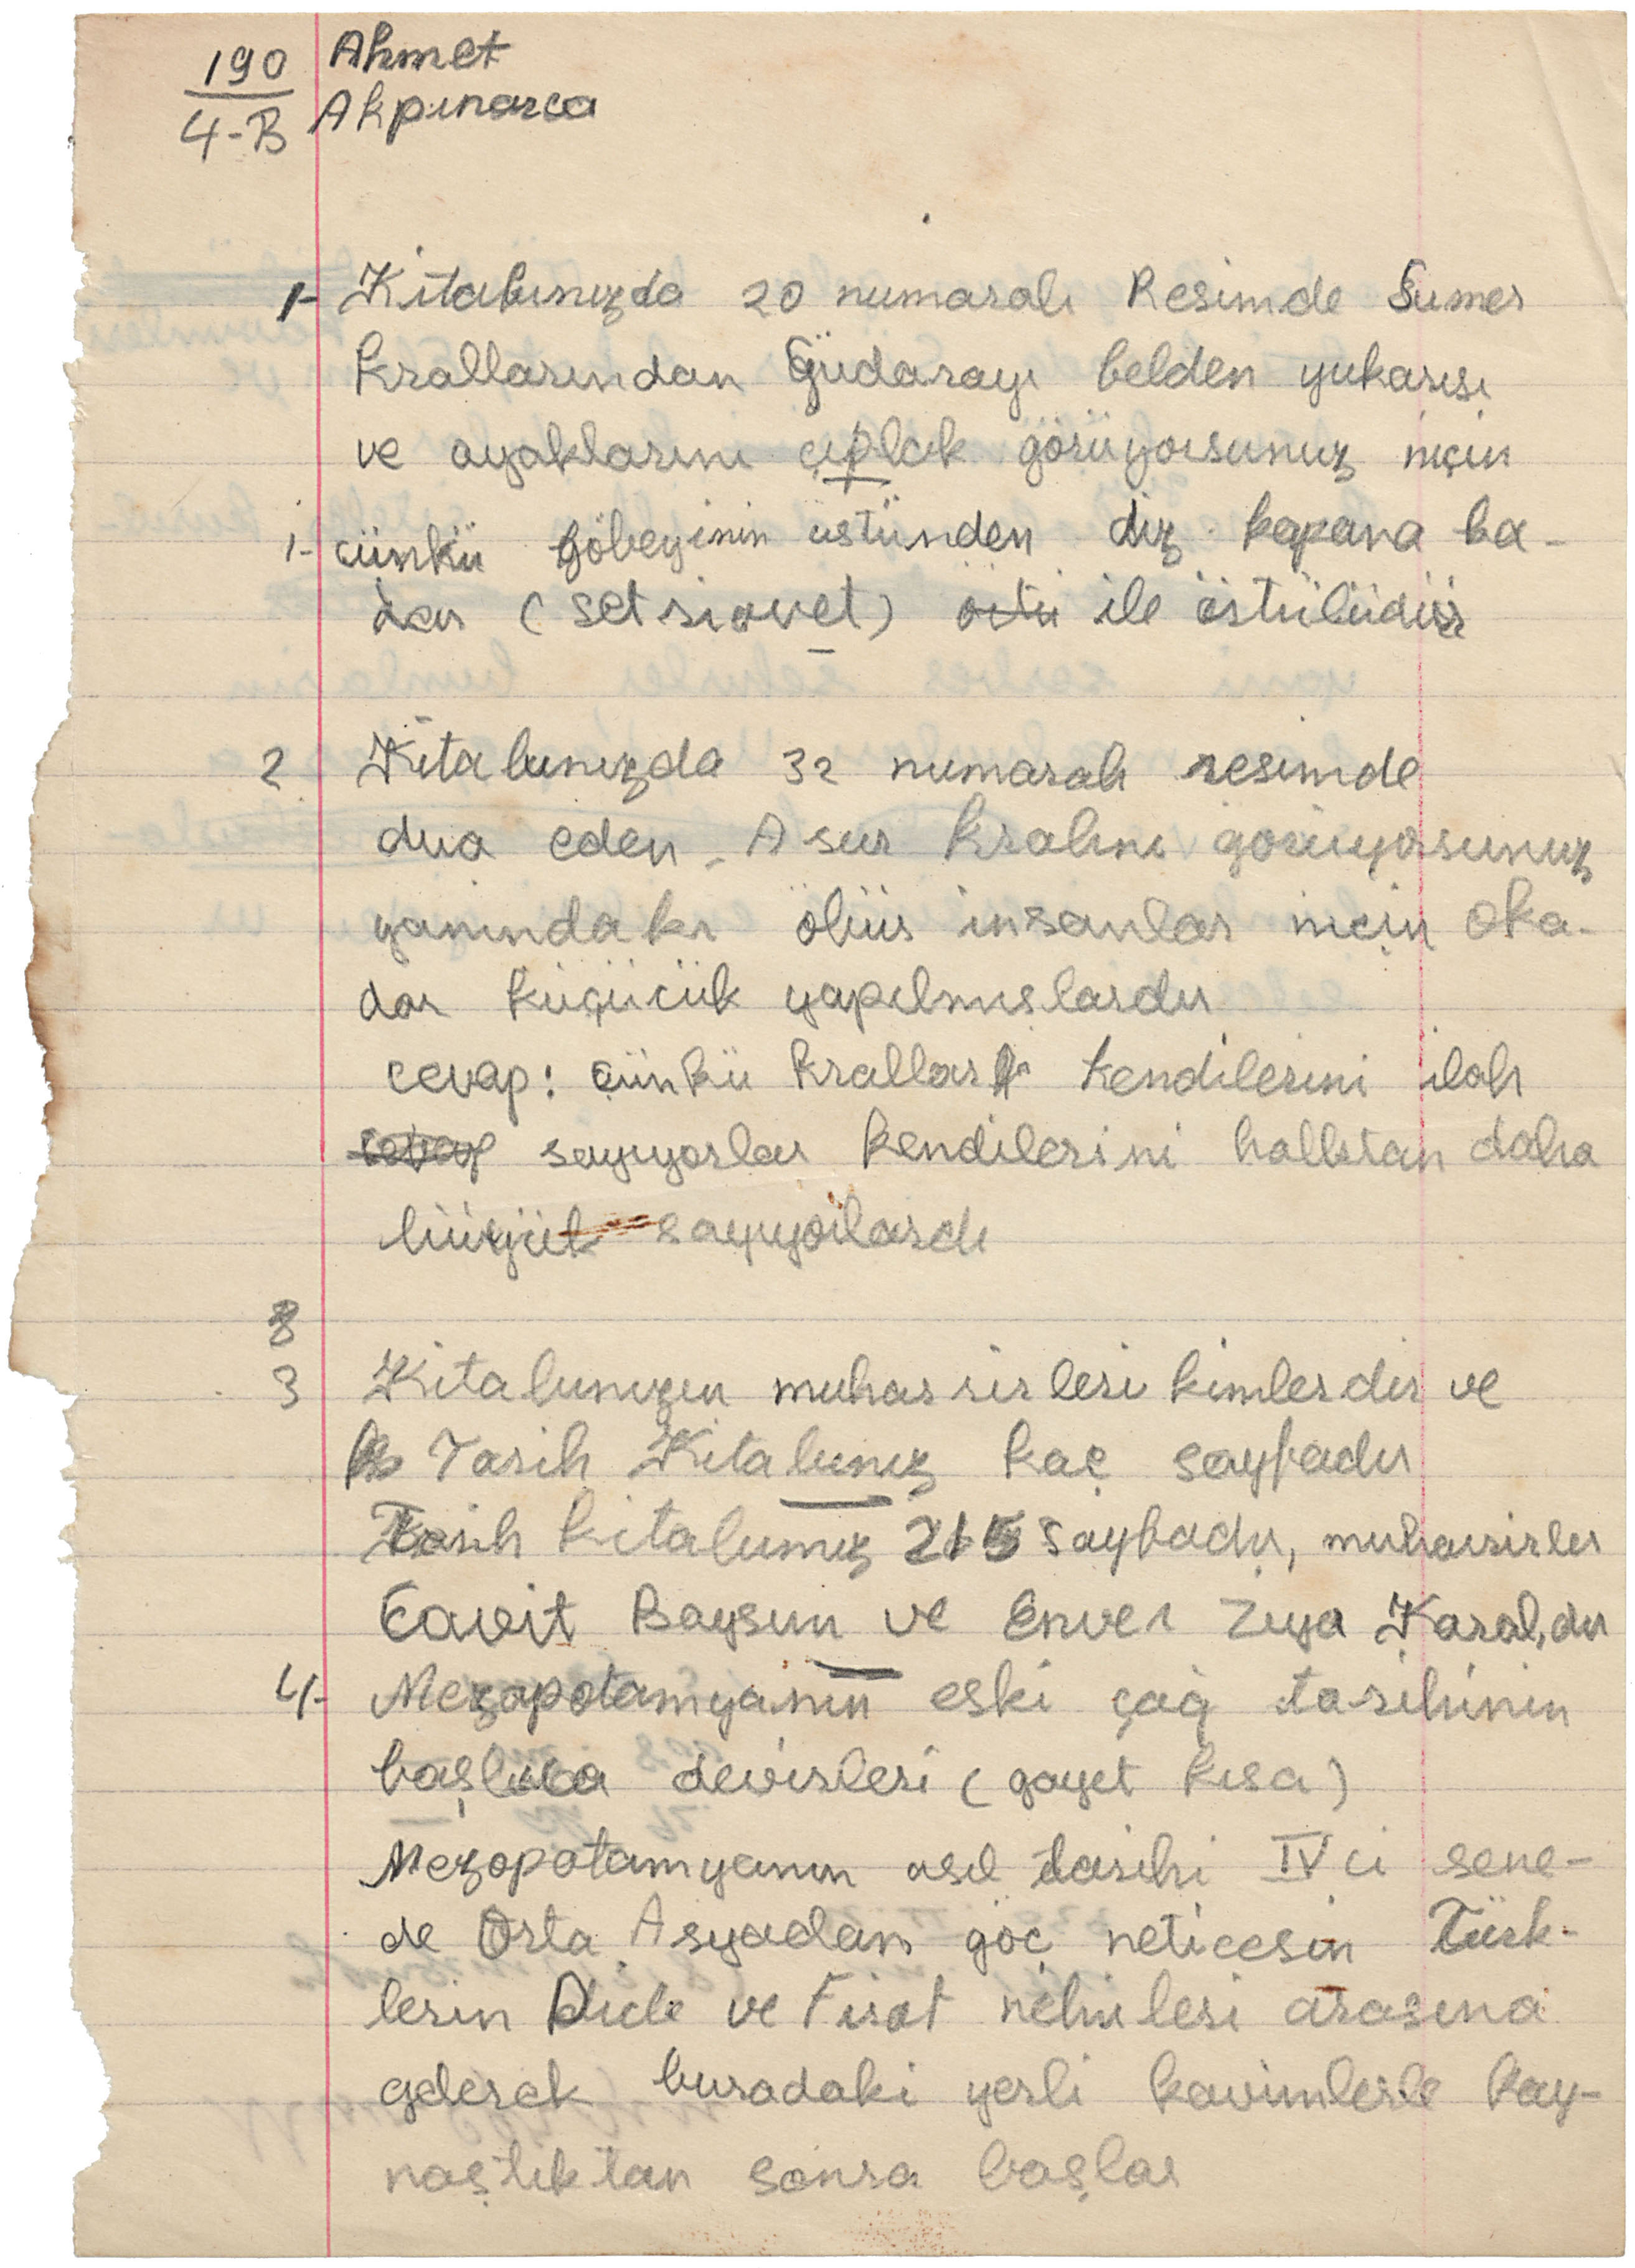 190 Ahmet
4-B Akpınarca
1- Kitabınızda 20 numaralı Resimde Sumer
krallarından Güdarayı belden yukarısı
ve ayaklarını çıplak görüyorsunuz niçin
1- cünkü göbeyinin üstünden diz kapana ka-
dar (setriavet) örtü ile örtülüdür
2 Kitabınızda 32 numaralı resimde
dua eden Asur kralını görüyorsunuz
yanındaki öbür insanlar niçin oka-
dar küçücük yapılmıslardır
cevap: cünkü krallar kendilerini ilah
sayıyorlar kendilerini halktan daha
büyük sayıyorlardı
3 Kitabınızın muharrirleri kimlerdir ve
Tarih Kitabınız kaç sayfadır
Tarih kitabımız 215 sayfadır, muharrirler
Cavit Baysun ve Enver Ziya Karal,dır
4- Mezopotamyanın eski çağ tarihinin
başlıca devirleri (gayet kısa)
Mezopotamyanın asıl tarihi IV ci sene-
de Orta Asyadan göç neticesin Türk-
lerin Dicle ve Fırat nehirleri arasına
gelerek buradaki yerli kavimlerle kay-
naştıktan sonra başlar